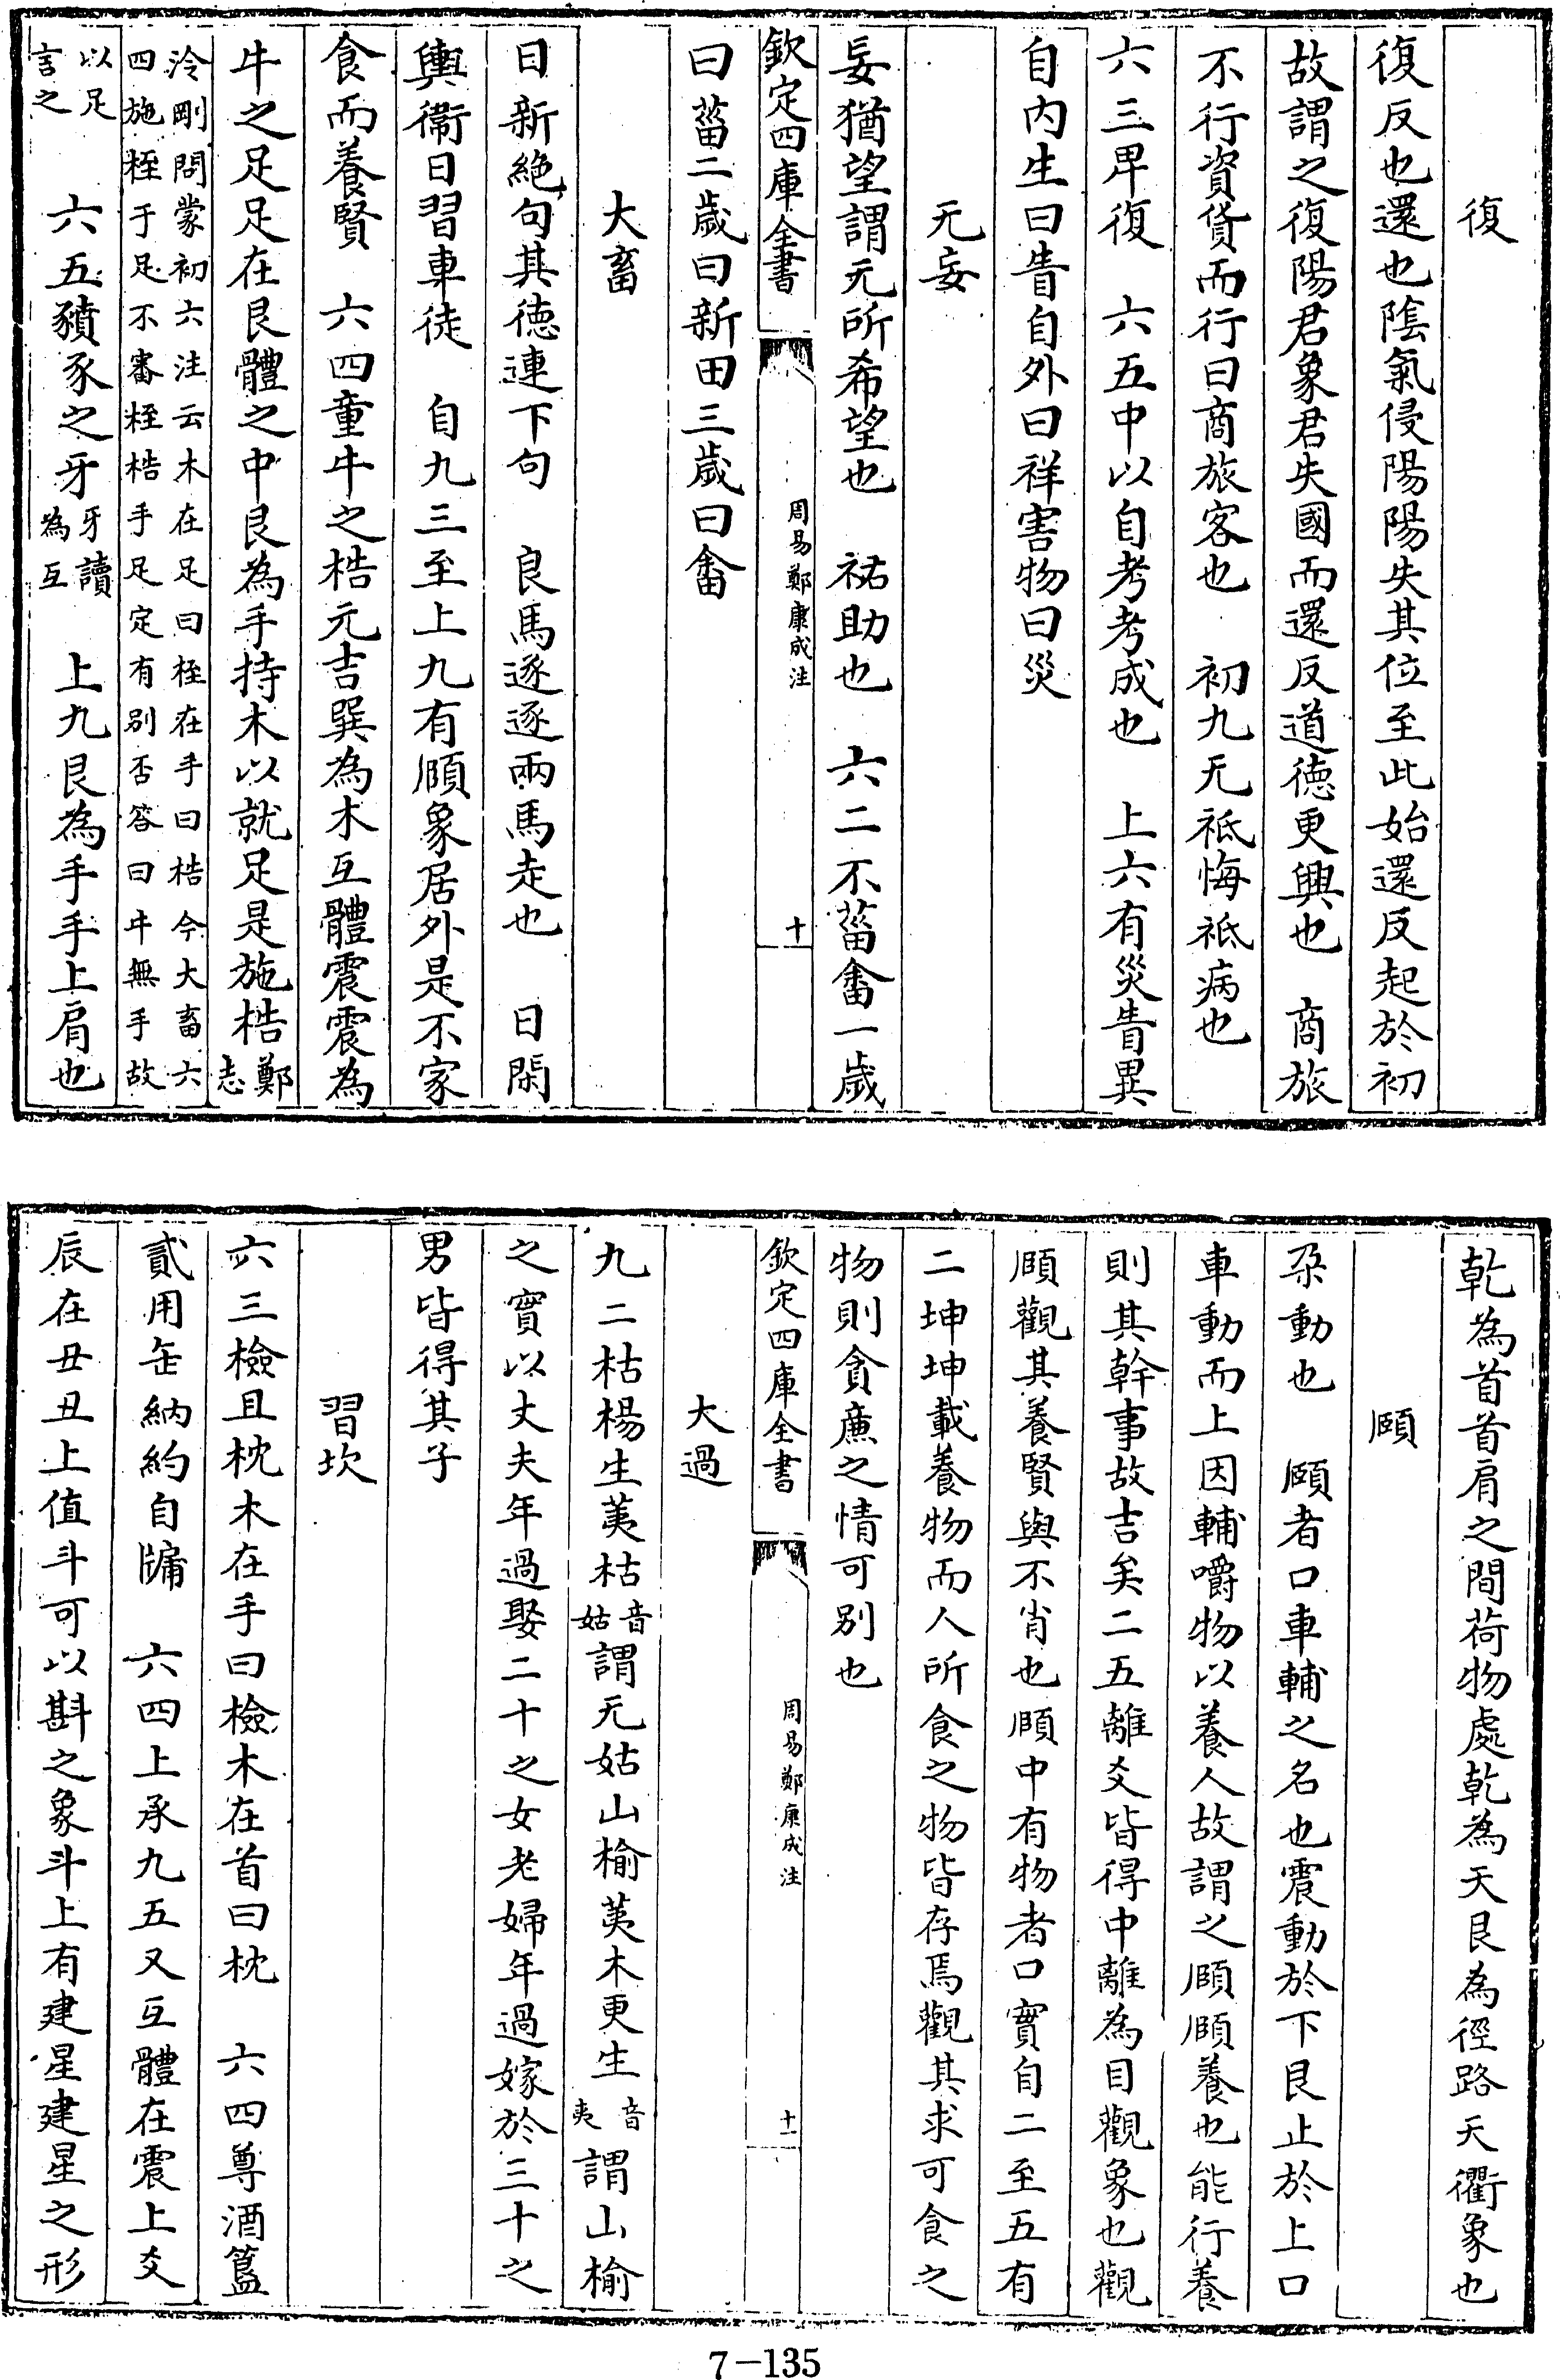 復
復反也還也隂氣侵陽陽失其位至此始還反起於初
故謂之復陽君象君失國而還反道德更興也　商旅
不行資貨而行曰商旅客也　初九无祗悔祗病也
六三卑復　六五中以自考考成也　上六有災眚異
自内生曰眚自外曰祥害物曰災
无妄
妄猶望謂无所希望也　祐助也　六二不菑畬一歲
欽定四庫全書
周易鄭康成注
十
曰菑二歲曰新田三歲曰畬
大畜
日新絶句其德連下句　良馬逐逐兩馬走也　日閑
輿衞日習車徒　自九三至上九有頤象居外是不家
食而養賢　六四童牛之梏元吉巽為木互體震震為
牛之足足在艮體之中艮為手持木以就足是施梏鄭志
泠剛問蒙初六注云木在足曰桎在手曰梏今大畜六
四施桎于足不審桎梏手足定有别否答曰牛無手故
以足言之　六五豶豕之牙牙讀為互　上九艮為手手上肩也
乾為首首肩之間荷物處乾為天艮為徑路天衢象也
頤
朶動也　頤者口車輔之名也震動於下艮止於上口
車動而上因輔嚼物以養人故謂之頤頤養也能行養
則其幹事故吉矣二五離爻皆得中離為目觀象也觀
頤觀其養賢與不肖也頤中有物者口實自二至五有
二坤坤載養物而人所食之物皆存焉觀其求可食之
物則貪亷之情可别也
欽定四庫全書
周易鄭康成注
十一
大過
九二枯楊生荑枯音姑謂无姑山榆荑木更生音夷謂山榆
之實以丈夫年過娶二十之女老婦年過嫁於三十之
男皆得其子
習坎
六三檢且枕木在手曰檢木在首曰枕　六四尊酒簋
貳用缶納約自牖　六四上承九五又互體在震上爻
辰在丑丑上值斗可以斟之象斗上有建星建星之形
7-135